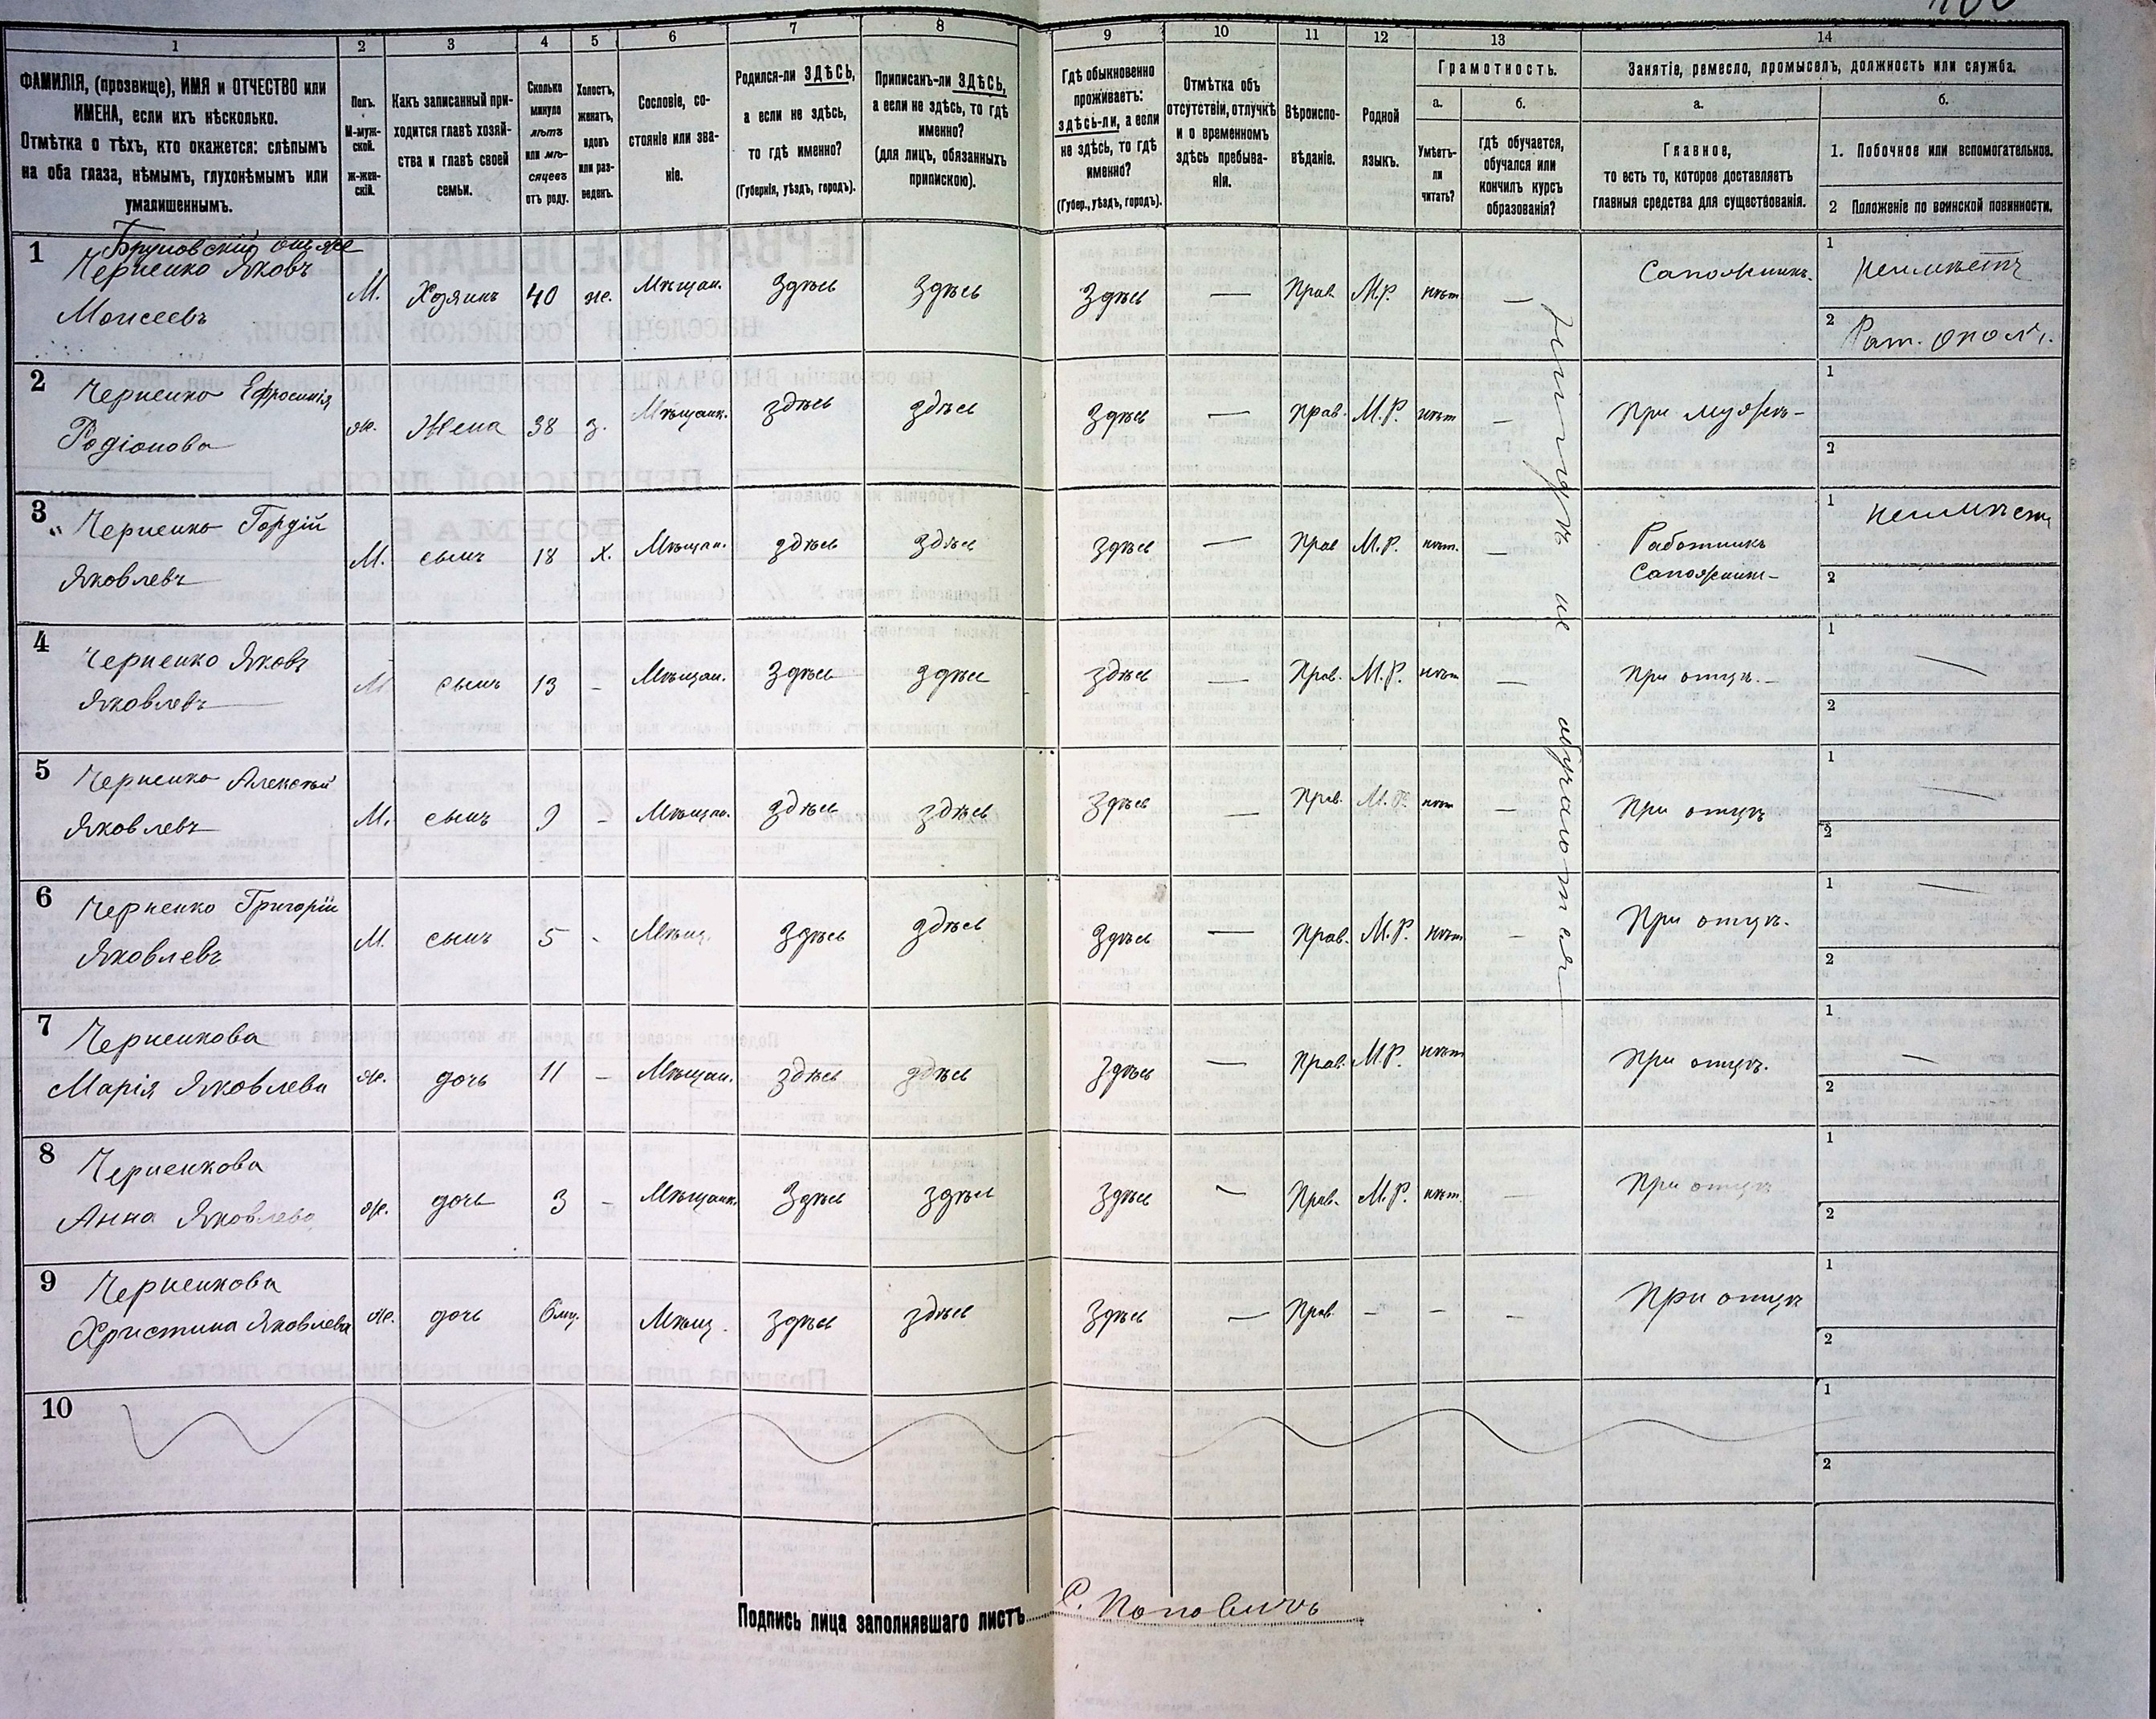 1 2 3 4 5 6 7 8 9 10 11 12 13 14
ФАМИЛІЯ, (прозвище), ИМЯ и ОТЧЕСТВО или
ИМЕНА, если ихъ нѣсколько.
Отмѣтка о тѣхъ, кто окажется: слѣпымъ
на оба глаза, нѣмымъ, глухонѣмымъ или
умалишеннымъ.
Полъ.
М-муж-
ской.
ж-жен-
скій.
Какъ записанный при-
ходится главѣ хозяй-
ства и главѣ своей
семьи.
Сколько
минуло
лѣтъ
или мѣ-
сяцевъ
отъ роду.
Холостъ,
женатъ,
вдовъ
или раз-
веденъ.
Сословіе, со-
стояніе или зва-
ніе.
Родился-ли ЗДѢСЬ,
а если не здѣсь,
то гдѣ именно?
(Губернія, уѣздъ, городъ).
Приписанъ-ли ЗДѢСЬ,
а если не здѣсь, то гдѣ
именно?
(для лицъ, обязанныхъ
припискою).
Гдѣ обыкновенно
проживаетъ:
здѣсь-ли, а если
не здѣсь, то гдѣ
именно?
(Губер., уѣздъ, городъ).
Отмѣтка объ
отсутствіи, отлучкѣ
и о временномъ
здѣсь пребыва-
ніи.
Вѣроиспо-
вѣданіе.
Родной
языкъ.
Грамотность.
а.
Умѣетъ-
ли
читать?
б.
гдѣ обучается,
обучался или
кончилъ курсъ
образованія?
Занятіе, ремесло, промыселъ, должность или служба.
а.
Главное,
то есть то, которое доставляетъ
главныя средства для существованія.
б.
1. Побочное или вспомогательное.
2 Положеніе по воинской повинности.
1 Черненко Яковъ
Моисеевъ
М. Хозяинъ 40 ж. Мѣщан. Здѣсь Здѣсь Здѣсь — Прав. М.Р. нѣт — Сапожникъ.
1 неимѣетъ
2 Рат. опол.
2 Черненко Ефросинія
Родіонова
ж. Жена 38 з. Мѣщанк. здѣсь здѣсь здѣсь — Прав. М.Р. нѣт — При мужѣ-
1
2
3 Черненко Гордій
Яковлевъ
М. сынъ 18 х. Мѣщан. здѣсь здѣсь здѣсь — Прав М.Р. нѣт. —
Работникъ
Сапожник-
1 неимѣетъ
2
4 Черненко Яковъ
Яковлевъ
М сынъ 13 - Мѣщан. Здѣсь здѣсь здѣсь — Прав. М.Р. нѣт — При отцѣ.-
1 —
2
5 Черненко Алексѣй
Яковлевъ
М. сынъ 9 - Мѣщан. здѣсь здѣсь Здѣсь — Прав. М.Р. нѣт — При отцѣ
1 —
2
6 Черненко Григорій
Яковлевъ
М. сынъ 5 - Мѣщ. Здѣсь здѣсь Здѣсь — Прав. М.Р. нѣт - При отцѣ.
1 —
2
7 Черненкова
Марія Яковлева
ж. дочь 11 - Мѣщан. здѣсь здѣсь Здѣсь — Прав. М.Р. нѣт При отцѣ.
1 —
2
8 Черненкова
Анна Яковлева
ж. дочь 3 - Мѣщанк. Здѣсь здѣсь Здѣсь — Прав. М.Р. нѣт. - При отцѣ
1
2
9 Черненкова
Христина Яковлева
ж. дочь 6 мц. Мѣщ. Здѣсь здѣсь Здѣсь — Прав. - - - При отцѣ
1
2
10
1
2
не обучаются
Подпись лица заполнявшаго листъ С. Поповичъ